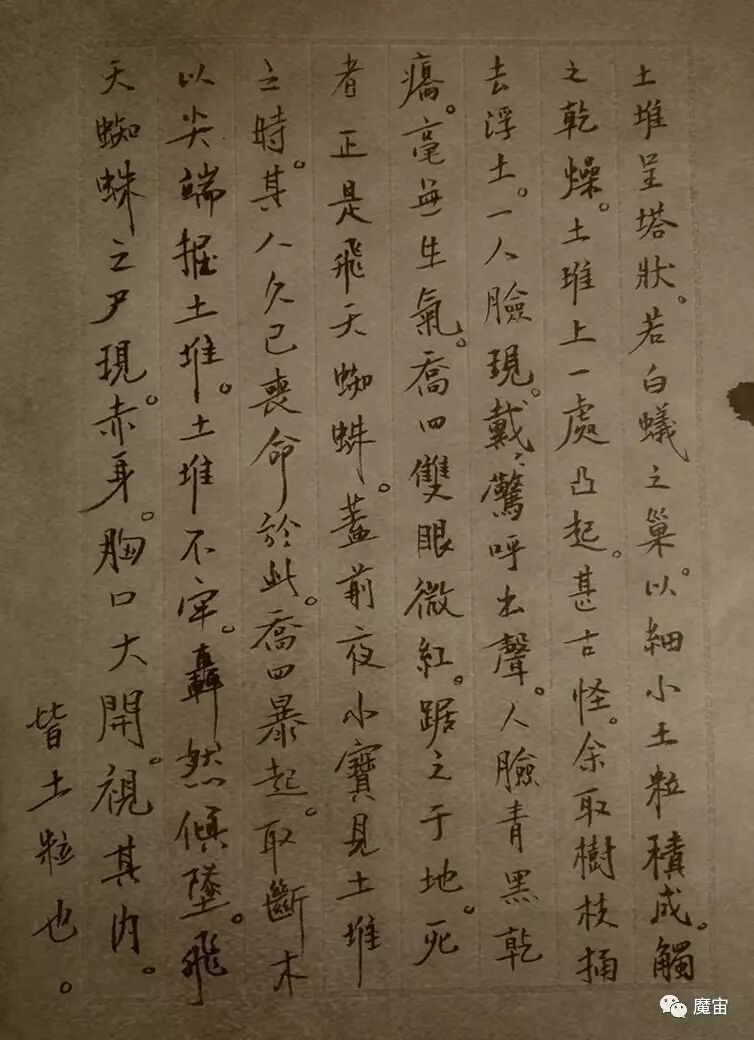 土堆呈塔狀。若白蟻之巢。以細小土粒積成。觸
之乾燥。土堆上一處凸起。甚古怪。余取樹枝捅
去浮土。一人臉現。戴戴驚呼出聲。人臉青黑乾
癟。毫無生氣。喬四雙眼微紅。踞之于地。死
者正是飛天蜘蛛。蓋前夜小寶見土堆
之時。其人久已喪命於此。喬四暴起。取斷木
以尖端掘土堆。土堆不牢。轟然傾墜。飛
天蜘蛛之尸現。赤身。胸口大開。視其内。
皆土粒也。
魔宙